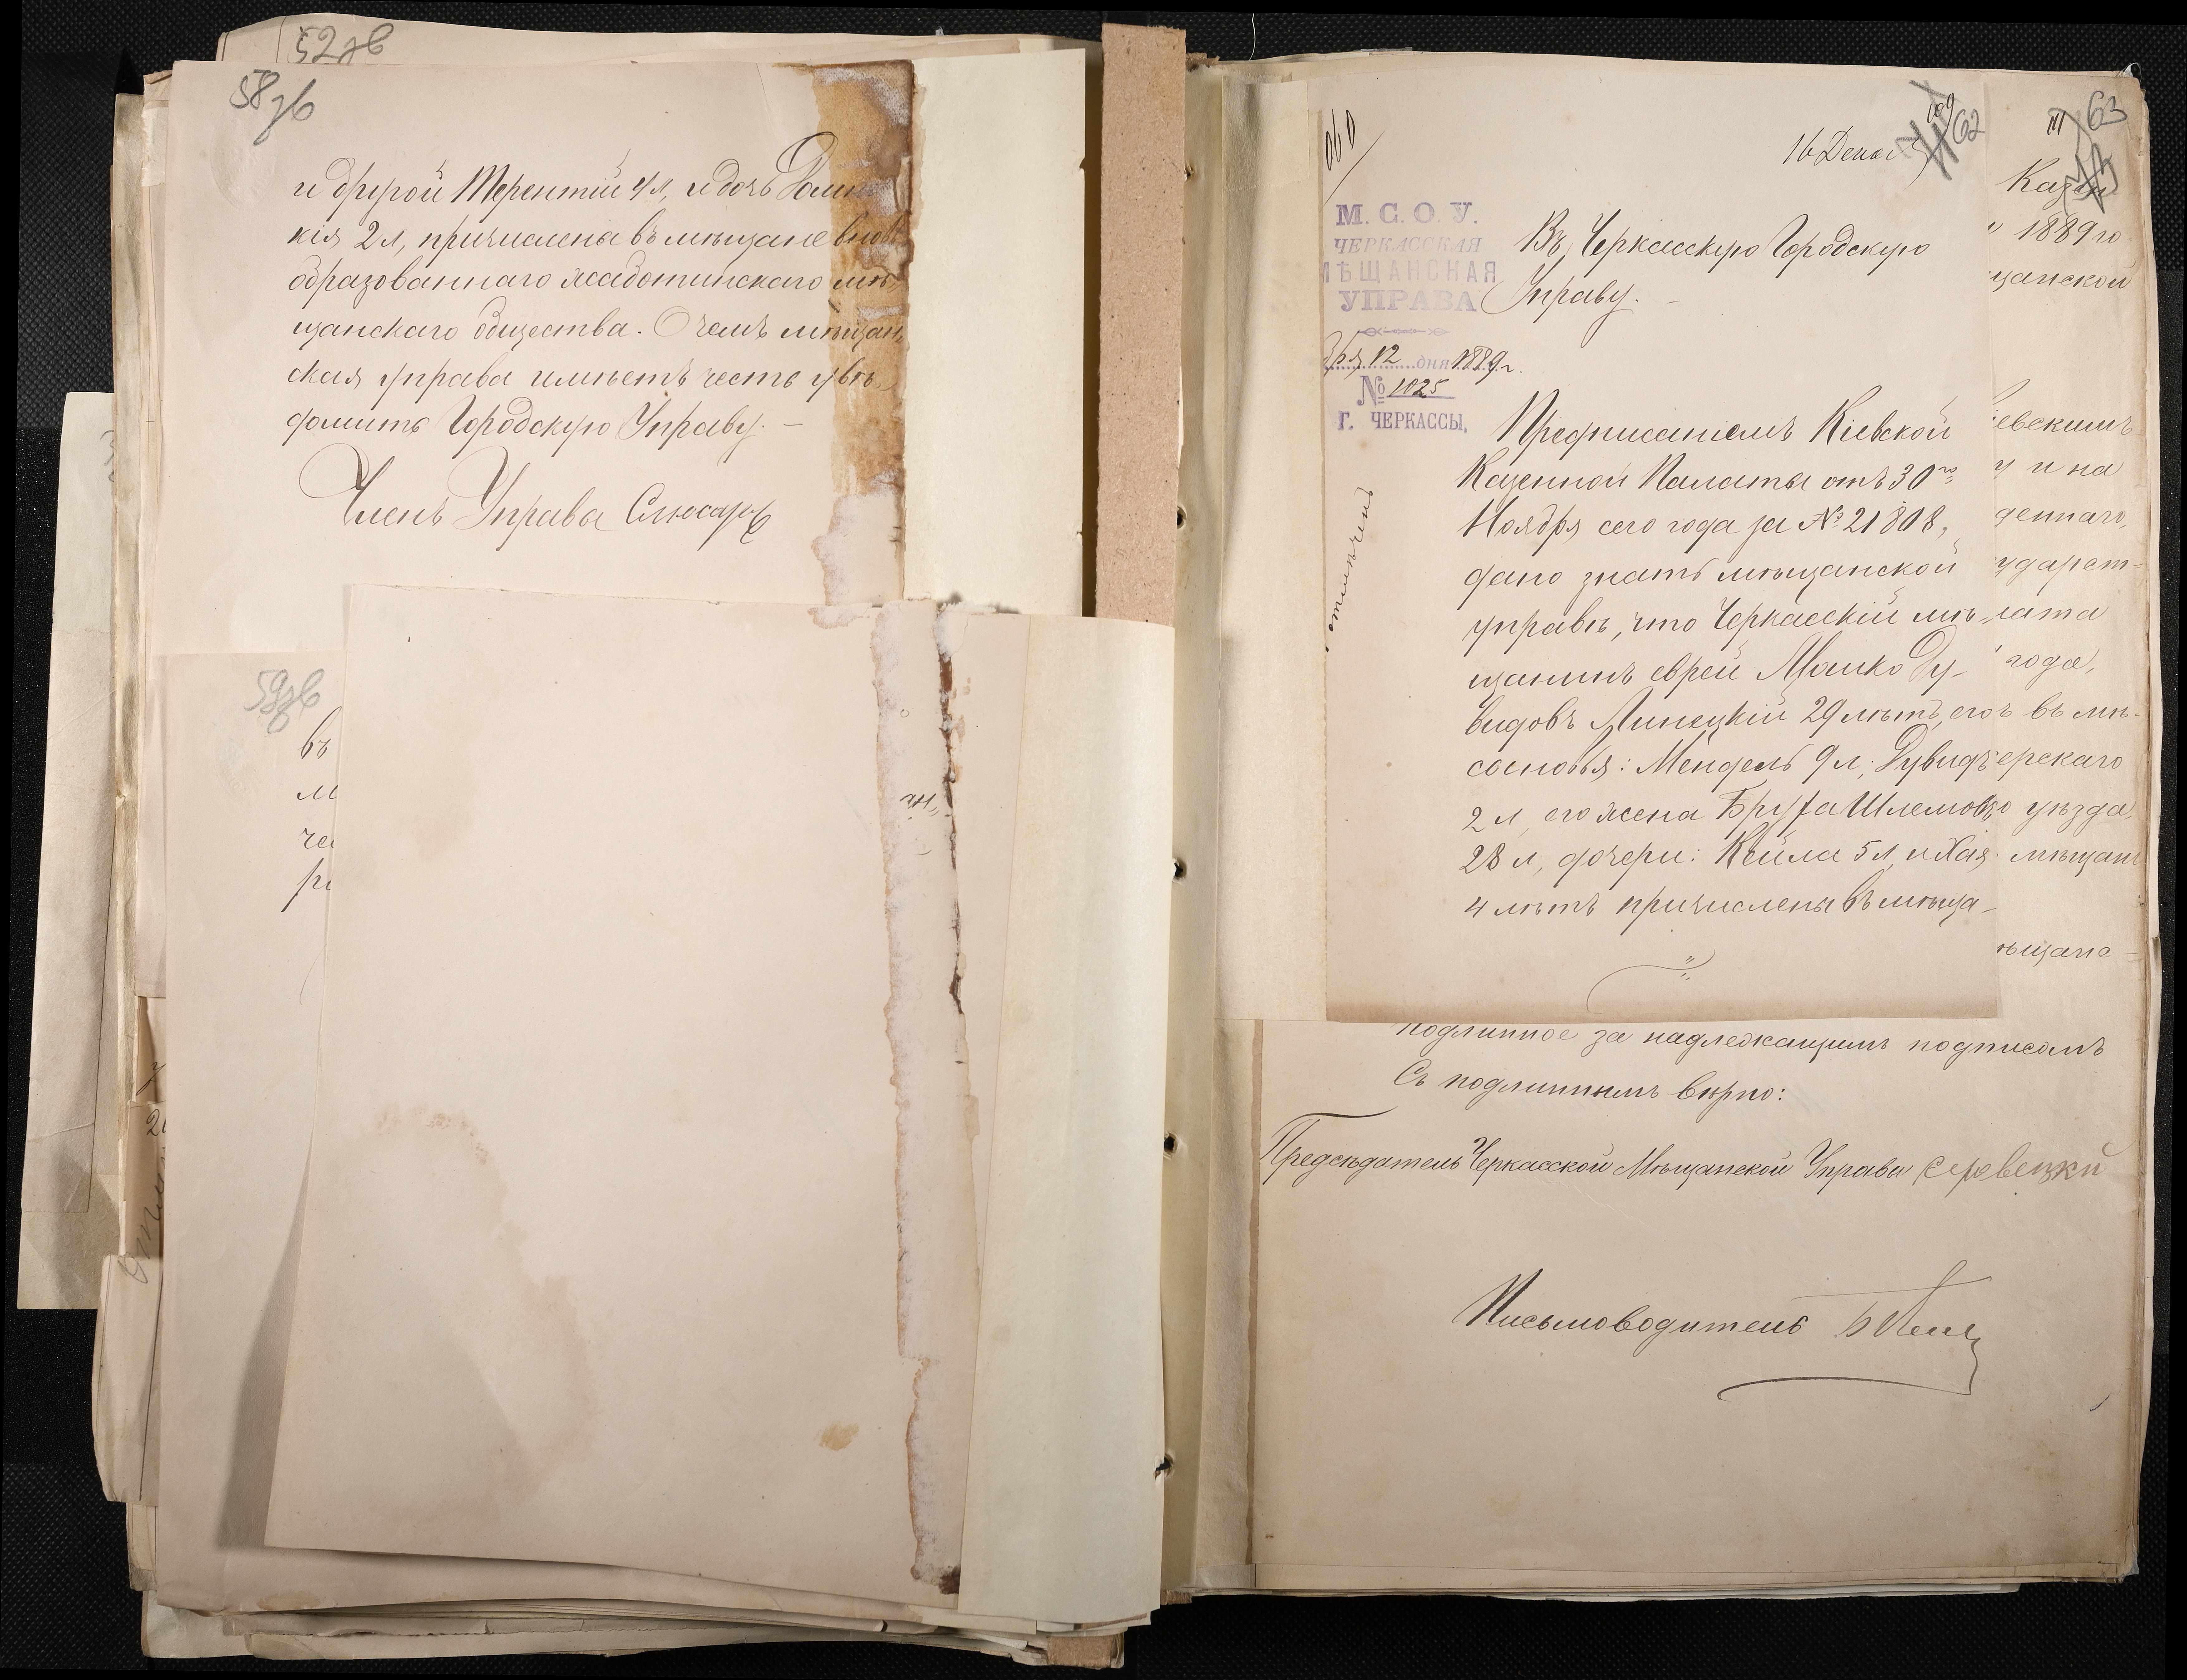 52зв
58зв
и другой Терентій 4 л, и дочь
кія 2 л, причислена въ мѣщане внов
образованнаго жаботинскаго мѣ
щанскаго общества. О чемъ мѣщан
ская управа имѣетъ честь увѣ
домить Городскую Управу. –
Членъ Управы Слюсарь
59зв
въ
м
че
ри
16 Дека
62
В. Черкасскую Городскую
Управу. –
М. С. О. У.
ЧЕРКАССКАЯ
МѢЩАНСКАЯ
УПРАВА
бря 12 дня 1889 г.
№ 1025
Г. ЧЕРКАССЫ,
отмѣченъ
Предписаніемъ Кіевской
Казенной Палаты отъ 30го
Ноября сего года за № 21808,
дано знать мѣщанской
управѣ, что Черкасскій мѣ-
щанинъ еврей Мошко Ду-
видовъ Липецкій 29 лѣтъ, его
сыновья: Мендель 9 л, Дувидъ
2 л, его жена Бруха Шлемов
28 л, дочери: Кейла 5 л, и Хая
4 лѣтъ причислены въ мѣща-
63
Казен
" 1889 го-
щанской
іевскимъ
у и на
деннаго,
ударст-
лата
года,
ъ въ мѣ-
ерскаго
о уѣзда,
мѣщан
ѣщанс-
подлинное за надлежащимъ подписомъ
Съ подлиннымъ вѣрно:
Предсѣдатель Черкасской Мѣщанской Управы
Письмоводитель